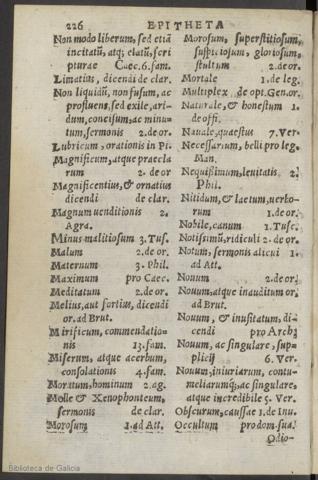 226 EPITHETA
Non modo liberum, sed etiã
incitatũ, atq; elatũ, scri
pturae Caec. 6. fam.
Limatius, dicendi de clar.
Non liquidũ, non fusum, ac
profluens, sed exile, ari-
dum, concisum, ac minu-
tum, sermonis 2. de or.
Lubricum, orationis in Pi.
Magnificum, atque praecla
rum 2. de or
Magnificentius, & ornatius
dicendi de clar.
Magnum uenditionis 2.
Agra.
Minus malitiosum 3. Tus.
Malum 2. de or.
Maternum 3. Phil.
Maximum pro Caec.
Meditatum 2. de or.
Melius, aut fortius, dicendi
or. ad Brut.
Mirificum, commendatio-
nis 13. fam.
Miserum, atque acerbum,
consolationis 4. fam.
Moratum, hominum 2. ag.
Molle & Xenophonteum,
sermonis de clar.
Morosum 1. ad Att.
Morosum, superstitiosum,
suspitiosum, gloriosum,
stultum 2. de or.
Mortale 1. de leg.
Multiplex de opt. Gen. or.
Naturale, & honestum 1.
de offi.
Nauale, quaestus 7. Ver.
Necessarium, belli pro leg.
Man.
Nequißimum, leuitatis 2.
Phil.
Nitidum, & laetum, uerbo-
rum 1. de or.
Nobile, canum 1. Tusc.
Notißimũ, ridiculi 2. de or.
Notum, sermonis alicui 1.
ad Att.
Nouum 2. de or.
Nouum, atque inauditum or.
ad Brut.
Nouum, & inusitatum, di-
cendi pro Arch.
Nouum, ac singulare, sup-
plicij 6. Ver.
Nouum, iniuriarum, contu-
meliarumq; ac singulare,
atque incredibile 5. Ver.
Obscurum, caussae 1. de Inu.
Occultum pro dom. sua.
Odio-
Biblioteca de Galicia